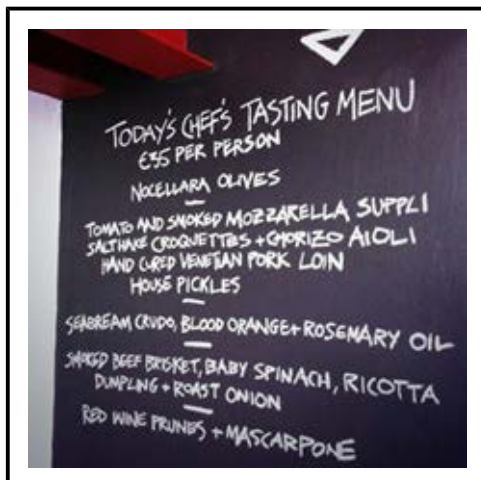 TODAY'S CHEF'S TASTING MENU
€35 PER PERSON
NOCELLARA OLIVES
TOMATO AND SMOKED MOZZARELLA SUPPLI
SALT HAKE CROQUETTES + CHORIZO AIOLI
HAND CURED VENETIAN PORK LOIN
HOUSE PICKLES
SEABREAM CRUDO, BLOOD ORANGE + ROSEMARY OIL
SMOKED BEEF BRISKET, BABY SPINACH, RICOTTA
DUMPLING + ROAST ONION
RED WINE PRUNES + MASCARPONE